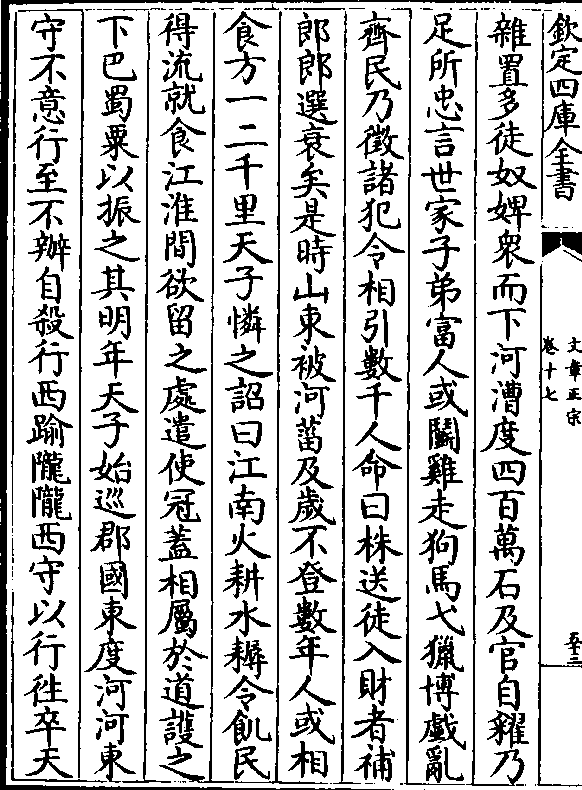 欽定四庫全書
文章正宗
卷十七
五十三
雜置多徒奴婢衆而下河漕度四百萬石及官自糴乃
足所忠言世家子弟富人或鬭雞走狗馬弋獵博戲亂
齊民乃徵諸犯令相引數千人命曰株送徒入財者補
郎郎選衰矣是時山東被河菑及歲不登數年人或相
食方一二千里天子憐之詔曰江南火耕水耨令飢民
得流就食江淮間欲留之處遣使冠蓋相屬於道護之
下巴蜀粟以振之其明年天子始巡郡國東度河河東
守不意行至不辦自殺行西踰隴隴西守以行徃卒天